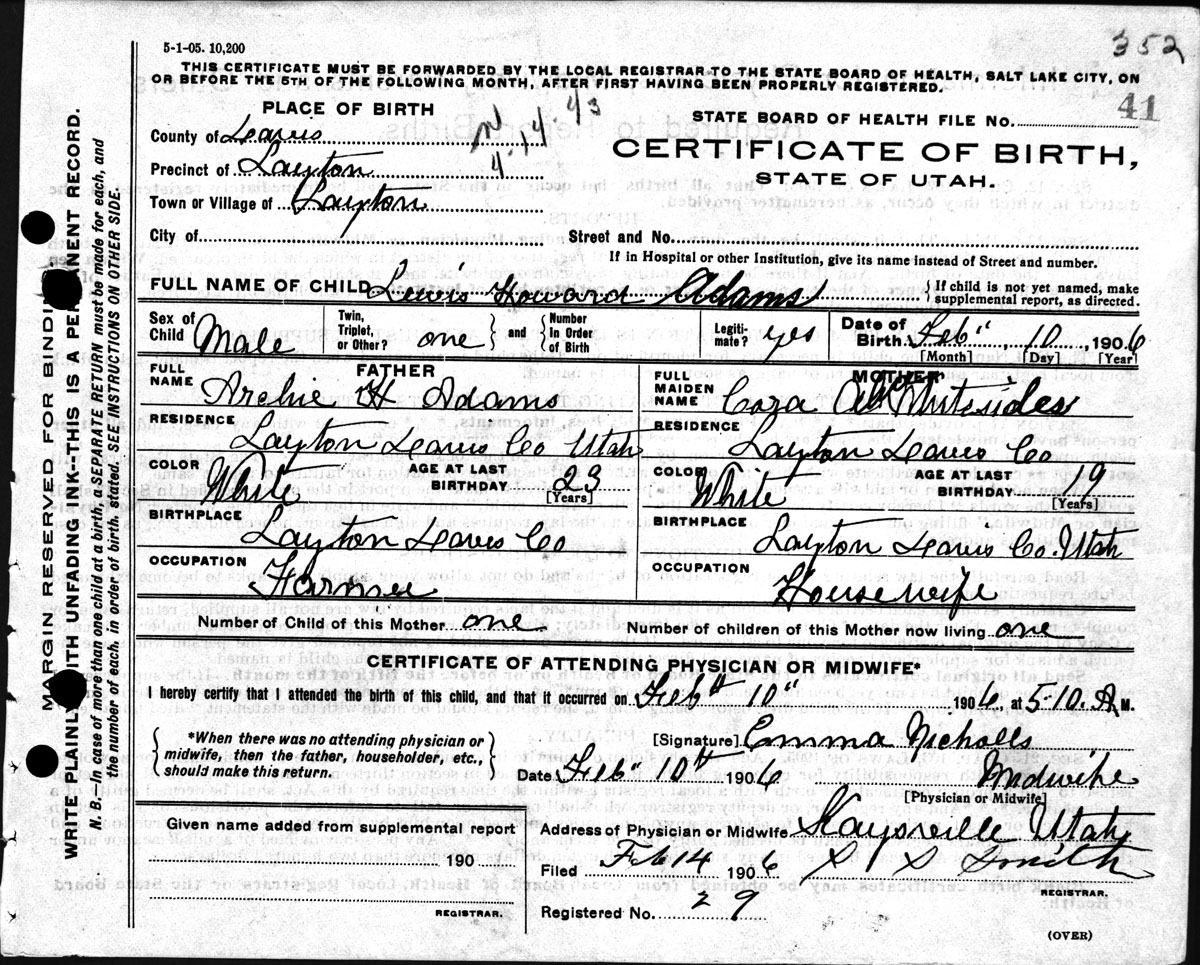 352
5-1-05. 10,200
THIS CERTIFICATE MUST BE FORWARDED BY THE LOCAL REGISTRAR TO THE STATE BOARD OF HEALTH, SALT LAKE CITY, ON
OR BEFORE THE 5TH OF THE FOLLOWING MONTH, AFTER FIRST HAVING BEEN PROPERLY REGISTERED.
PLACE OF BIRTH
STATE BOARD OF HEALTH FILE NO. 41
County of Davis
4.14.43
Precinct of Layton
CERTIFICATE OF BIRTH,
STATE OF UTAH.
Town or Village of Layton
City of
Street and No.
If in Hospital or other Institution, give its name instead of Street and number.
FULL NAME OF CHILD Lewis Howard Adams { If child is not yet named, make supplemental report, as directed.
Sex of Child Male Twin, Triplet, or Other? one } and { Number in Order of Birth Legiti-mate? yes Date of Birth. Feb" 10, 1906
[Month] [Day] [Year]
FATHER
FULL NAME Archie H Adams
MOTHER
FULL MAIDEN NAME Cora Whitesides
RESIDENCE Layton Davis Co Utah
RESIDENCE Layton Davis Co
COLOR White AGE AT LAST BIRTHDAY 23 [Years]
COLOR White AGE AT LAST BIRTHDAY 19 [Years]
BIRTHPLACE Layton Davis Co
BIRTHPLACE Layton Davis Co. Utah
OCCUPATION Farmer
OCCUPATION Housewife
Number of Child of this Mother one
Number of children of this Mother now living one
CERTIFICATE OF ATTENDING PHYSICIAN OR MIDWIFE*
I hereby certify that I attended the birth of this child, and that it occurred on Feb" 10" 1906, at 5-10. A M.
{ *When there was no attending physician or midwife, then the father, householder, etc., should make this return. }
[Signature] Emma Nicholls
Date Feb" 10th 1906 Midwife
[Physician or Midwife]
Given name added from supplemental report
190
REGISTRAR.
Address of Physician or Midwife Kaysville Utah
Filed Feb 14 1906 S Smith
REGISTRAR.
Registered No. 29
(OVER)
MARGIN RESERVED FOR BINDING
WRITE PLAINLY WITH UNFADING INK--THIS IS A PERMANENT RECORD.
N. B. In case of more than one child at a birth, a SEPARATE RETURN must be made for each, and
the number of each, in order of birth, stated. SEE INSTRUCTIONS ON OTHER SIDE.